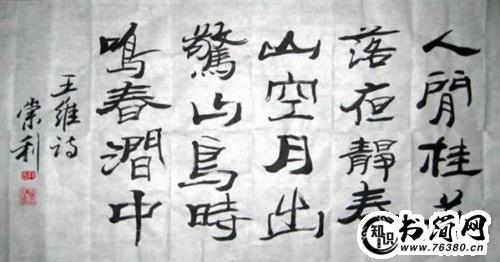 人閒桂花
落夜靜春
山空月出
驚山鳥時
鳴春澗中
王維詩
常利
知识
书简网
www.76380.cn